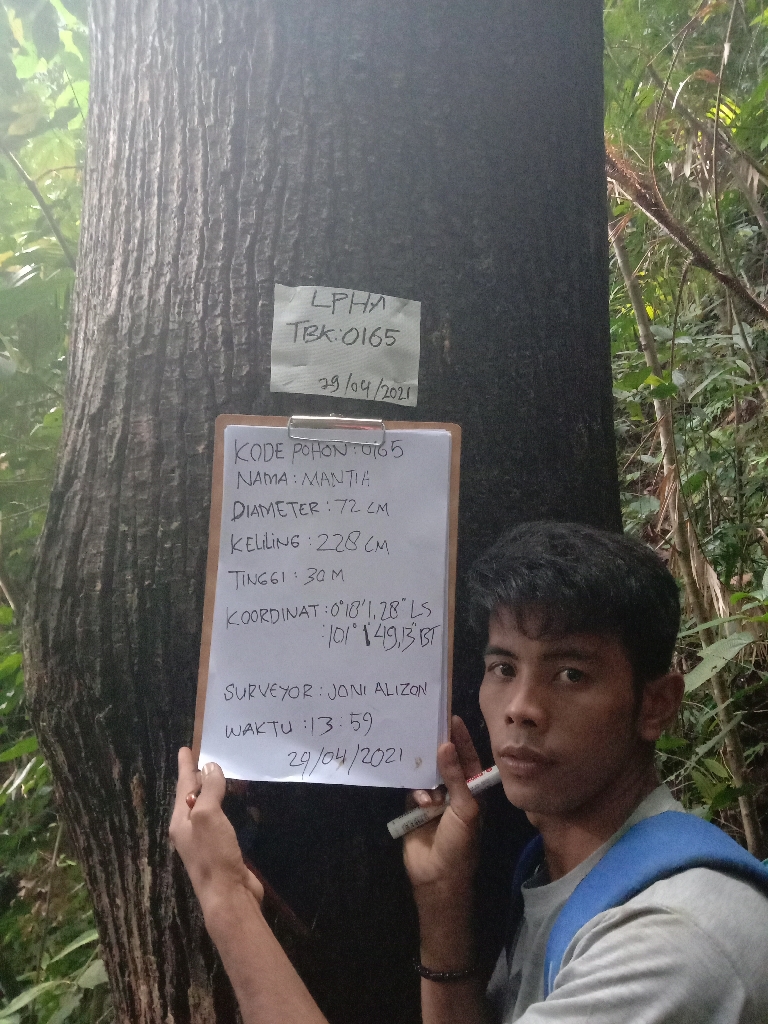 LPHA
TBK:0165
29/04/2021
KODE POHON:0165
NAMA: MANTIH
DIAMETER: 72 CM
KELILING: 228 CM
TINGGI: 30 M
KOORDINAT: 0°18'1,28" LS
:101° 1'49,13" BT
SURVEYOR: JONI ALIZON
WAKTU: 13:59
29/04/2021